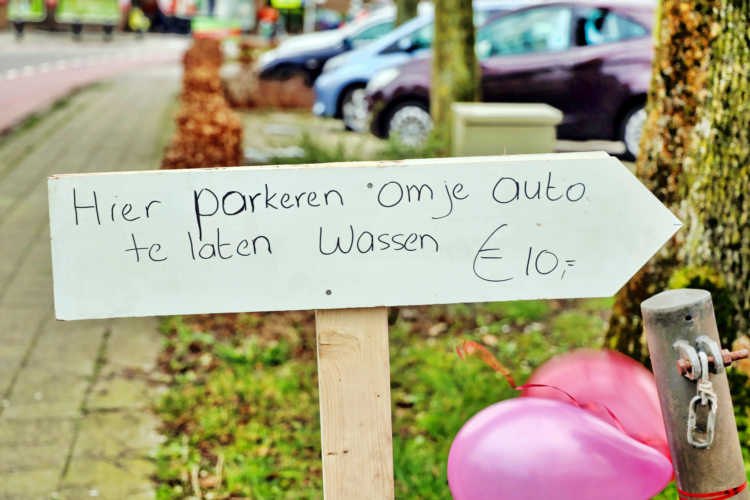 Hier parkeren om je auto
te laten wassen € 10,=